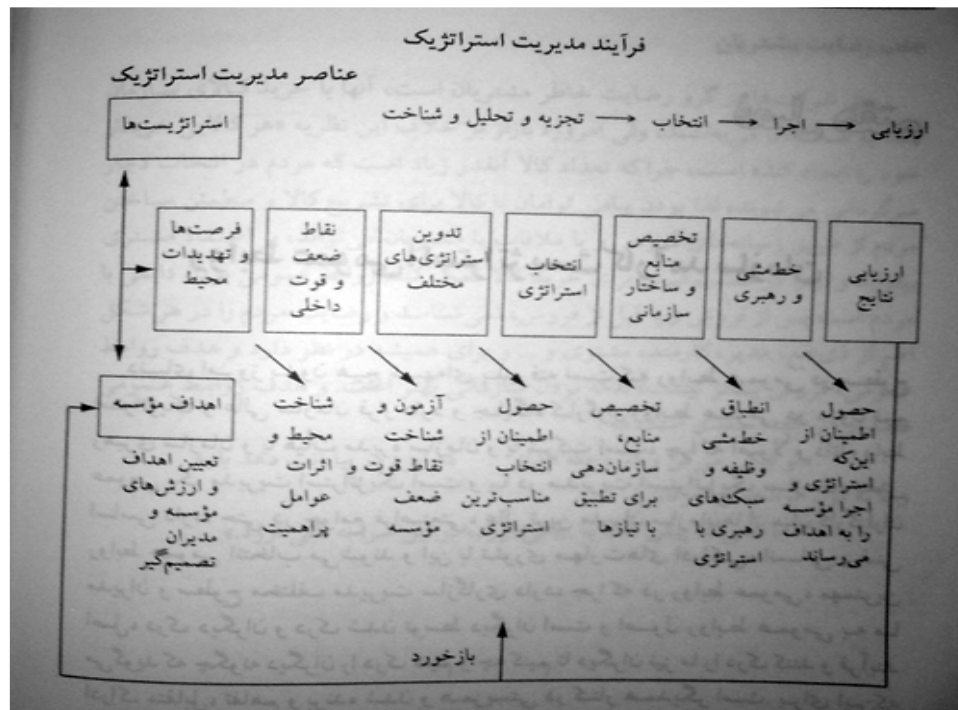 فرآیند مدیریت استراتژیک
عناصر مدیریت استراتژیک
تجزیه و تحلیل و شناخت
انتخاب
اجرا
ارزیابی
استراتژیست‌ها
فرصت‌ها
و تهدیدات
محیط
نقاط
ضعف
و قوت
داخلی
تدوین
استراتژی‌های
مختلف
انتخاب
استراتژی
تخصیص
منابع
و ساختار
سازمانی
خط‌مشی
و رهبری
ارزیابی
نتایج
اهداف مؤسسه
تعیین اهداف
و ارزش‌های
مؤسسه و
مدیران
تصمیم‌گیر
شناخت
محیط و
اثرات
عوامل
پراهمیت
آزمون و
شناخت
نقاط قوت و
ضعف
مؤسسه
حصول
اطمینان از
انتخاب
مناسب‌ترین
استراتژی
تخصیص
منابع،
سازمان‌دهی
برای تطبیق
با نیازها
انطباق
خط‌مشی
وظیفه و
سبک‌های
رهبری با
استراتژی
حصول
اطمینان از
این‌که
استراتژی و
اجرا مؤسسه
را به اهداف
می‌رساند
بازخورد